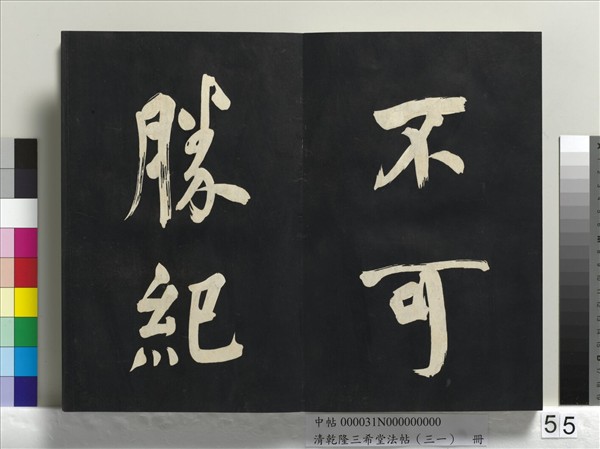 不可
勝紀
中帖 000031N000000000
清乾隆三希堂法帖（三一） 冊
55